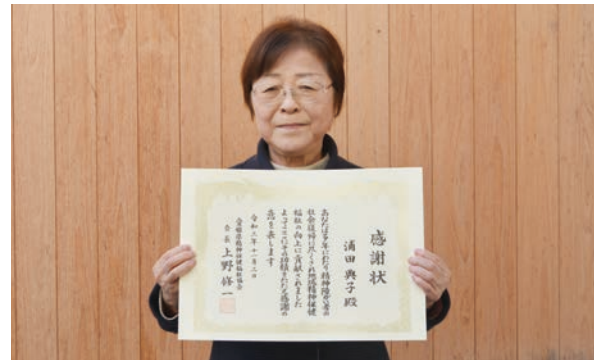 感謝状
浦田典子殿
あなたは多年にわたり精神障がい者の
社会復帰に尽くされ地域精神保健
福祉の向上に貢献されました
よってここにその功績をたたえ感謝の
意を表します
令和三年十一月二日
愛媛県精神保健福祉協会
会長 上野修一